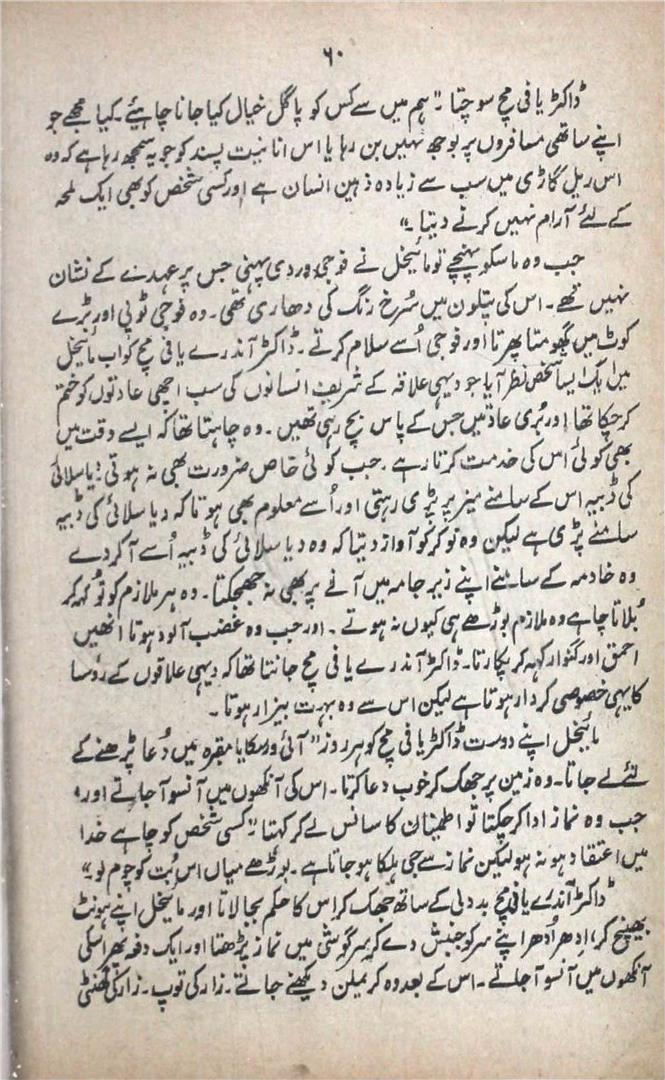 ۶۰
ڈاکٹر یافی مچ سوچتا۔ "ہم میں سے کس کو پاگل خیال کیا جانا چاہیئے۔ کیا مجھے جو
اپنے ساتھی مسافروں پر بوجھ نہیں بن رہا یا اس انانیت پسند کو جو یہ سمجھ رہا ہے کہ وہ
اس ریل گاڑی میں سب سے زیادہ ذہین انسان ہے اور کسی شخص کو بھی ایک لمحہ
کے لئے آرام نہیں کرنے دیتا۔"
جب وہ ماسکو پہنچے تو مائیخل نے فوجی وردی پہنی جس پر عہدے کے نشان
نہیں تھے۔ اس کی پتلون میں سُرخ رنگ کی دھاری تھی۔ وہ فوجی ٹوپی اور بڑے
کوٹ میں گھومتا پھرتا اور فوجی اُسے سلام کرتے۔ ڈاکٹر آندرے یافی مچ کو اب مائیخل
میں ایک ایسا شخص نظر آیا جو دیہی علاقہ کے شریف انسانوں کی سب اچھی عادتوں کو ختم
کر چکا تھا اور بُری عادتیں جس کے پاس بچ رہی تھیں۔ وہ چاہتا تھا کہ ایسے وقت میں
بھی کوئی اس کی خدمت کرتا رہے۔ جب کوئی خاص ضرورت بھی نہ ہوتی۔ دیا سلائی
کی ڈبیہ اس کے سامنے میز پر پڑی رہتی اور اُسے معلوم بھی ہوتا کہ دیا سلائی کی ڈبیہ
سامنے پڑی ہے لیکن وہ نوکر کو آواز دیتا کہ وہ دیا سلائی کی ڈبیہ اُسے آکر دے
وہ خادمہ کے سامنے اپنے زیر جامہ میں آنے پر بھی نہ جھجکتا۔ وہ ہر ملازم کو تُو کہہ کر
بُلاتا چاہے وہ ملازم بوڑھے ہی کیوں نہ ہوتے۔ اور جب وہ غضب آلود ہوتا انھیں
احمق اور گنوار کہہ کر پکارتا۔ ڈاکٹر آندرے یافی مچ جانتا تھا کہ دیہی علاقوں کے رؤسا
کا یہی خصوصی کردار ہوتا ہے لیکن اس سے وہ بہت بیزار ہوتا۔
مائیخل اپنے دوست ڈاکٹر یافی مچ کو ہر روز "آئی ورسکایا مقبرہ میں دُعا پڑھنے کے
لئے لے جاتا۔ وہ زمین پر جھک کر خوب دعا کرتا۔ اس کی آنکھوں میں آنسو آجاتے اور
جب وہ نماز ادا کر چکتا تو اطمینان کا سانس لے کر کہتا "کسی شخص کو چاہے خدا
میں اعتقاد ہو نہ ہو لیکن نماز سے جی ہلکا ہو جاتا ہے۔ بوڑھے میاں اس بُت کو چوم لو۔"
ڈاکٹر آندرے یافی مچ بددلی کے ساتھ جھک کر اس کا حکم بجا لاتا اور مائیخل اپنے ہونٹ
بھینچ کر، اِدھر اُدھر اپنے سر کو جنبش دے کر سرگوشی میں نماز پڑھتا اور ایک دفعہ پھر اسکی
آنکھوں میں آنسو آجاتے۔ اس کے بعد وہ کریملن دیکھنے جاتے۔ زار کی توپ۔ زار کی گھنٹی